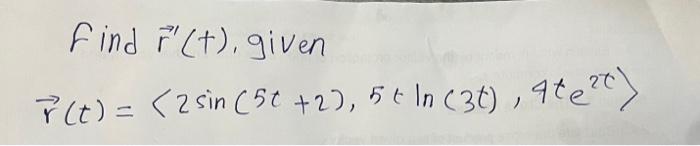 Find r⃗'(t), given
r⃗(t) = <2 sin(5t +2), 5t ln(3t), 4te^{2t}>